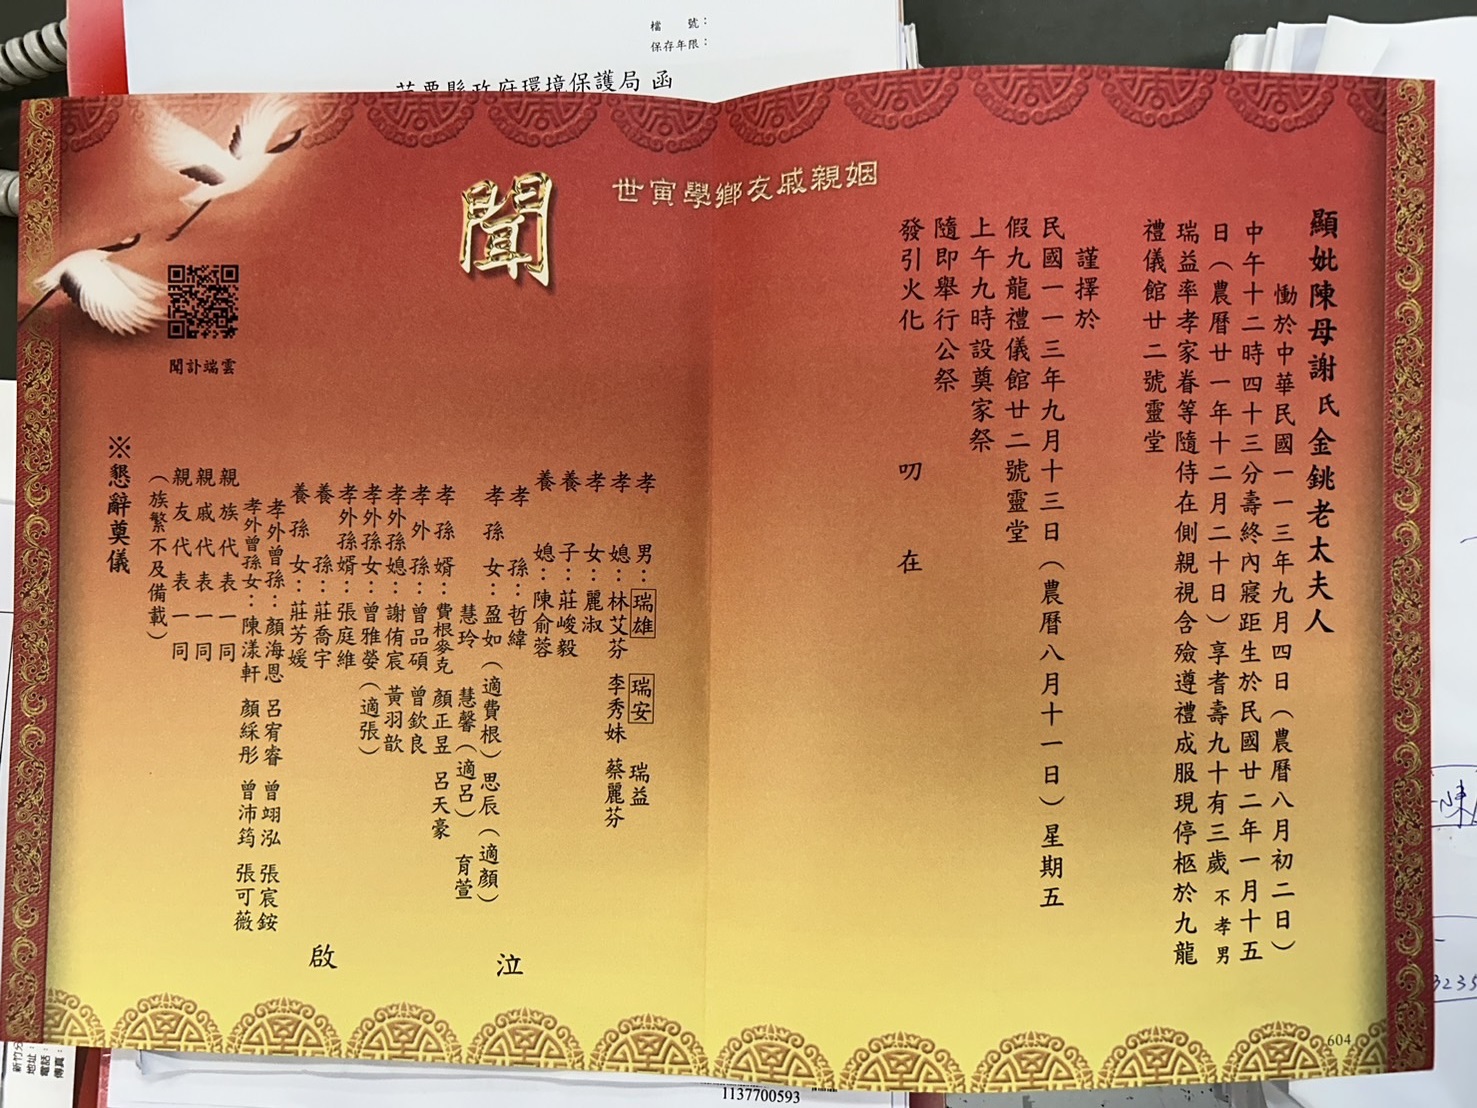 檔　　號：
保存年限：
苗栗縣政府環境保護局 函
顯妣陳母謝氏金銚老太夫人
慟於中華民國一一三年九月四日（農曆八月初二日）
中午十二時四十三分壽終內寢距生於民國廿二年一月十五
日（農曆廿一年十二月二十日）享耆壽九十有三歲 不孝男
瑞益率孝家眷等隨侍在側親視含殮遵禮成服現停柩於九龍
禮儀館廿二號靈堂
謹擇於
民國一一三年九月十三日（農曆八月十一日）星期五
假九龍禮儀館廿二號靈堂
上午九時設奠家祭
隨即舉行公祭
發引火化
叨　在
姻親戚友鄉學寅世
聞
孝　男：瑞雄　瑞安　瑞益
孝　媳：林艾芬　李秀妹　蔡麗芬
孝　女：麗淑
養　子：莊峻毅
養　媳：陳俞蓉
孝　孫：哲緯
孝孫女：盈如（適費根）思辰（適顏）
慧玲　慧馨（適呂）　育萱
孝孫婿：費根麥克　顏正昱　呂天豪
孝外孫：曾品碩　曾欽良
孝外孫媳：謝侑宸　黃羽歆
孝外孫女：曾雅蓥（適張）
孝外孫婿：張庭維
養　孫：莊喬宇
養孫女：莊芳媛
孝外曾孫：顏海恩　呂宥睿　曾翊泓　張宸銨
孝外曾孫女：陳漾軒　顏綵彤　曾沛筠　張可薇
親族代表一同
親戚代表一同
親友代表一同
（族繁不及備載）
泣
啟
※懇辭奠儀
聞訃端雲
604
1137700593
地址：
電話：
傳真：
3235